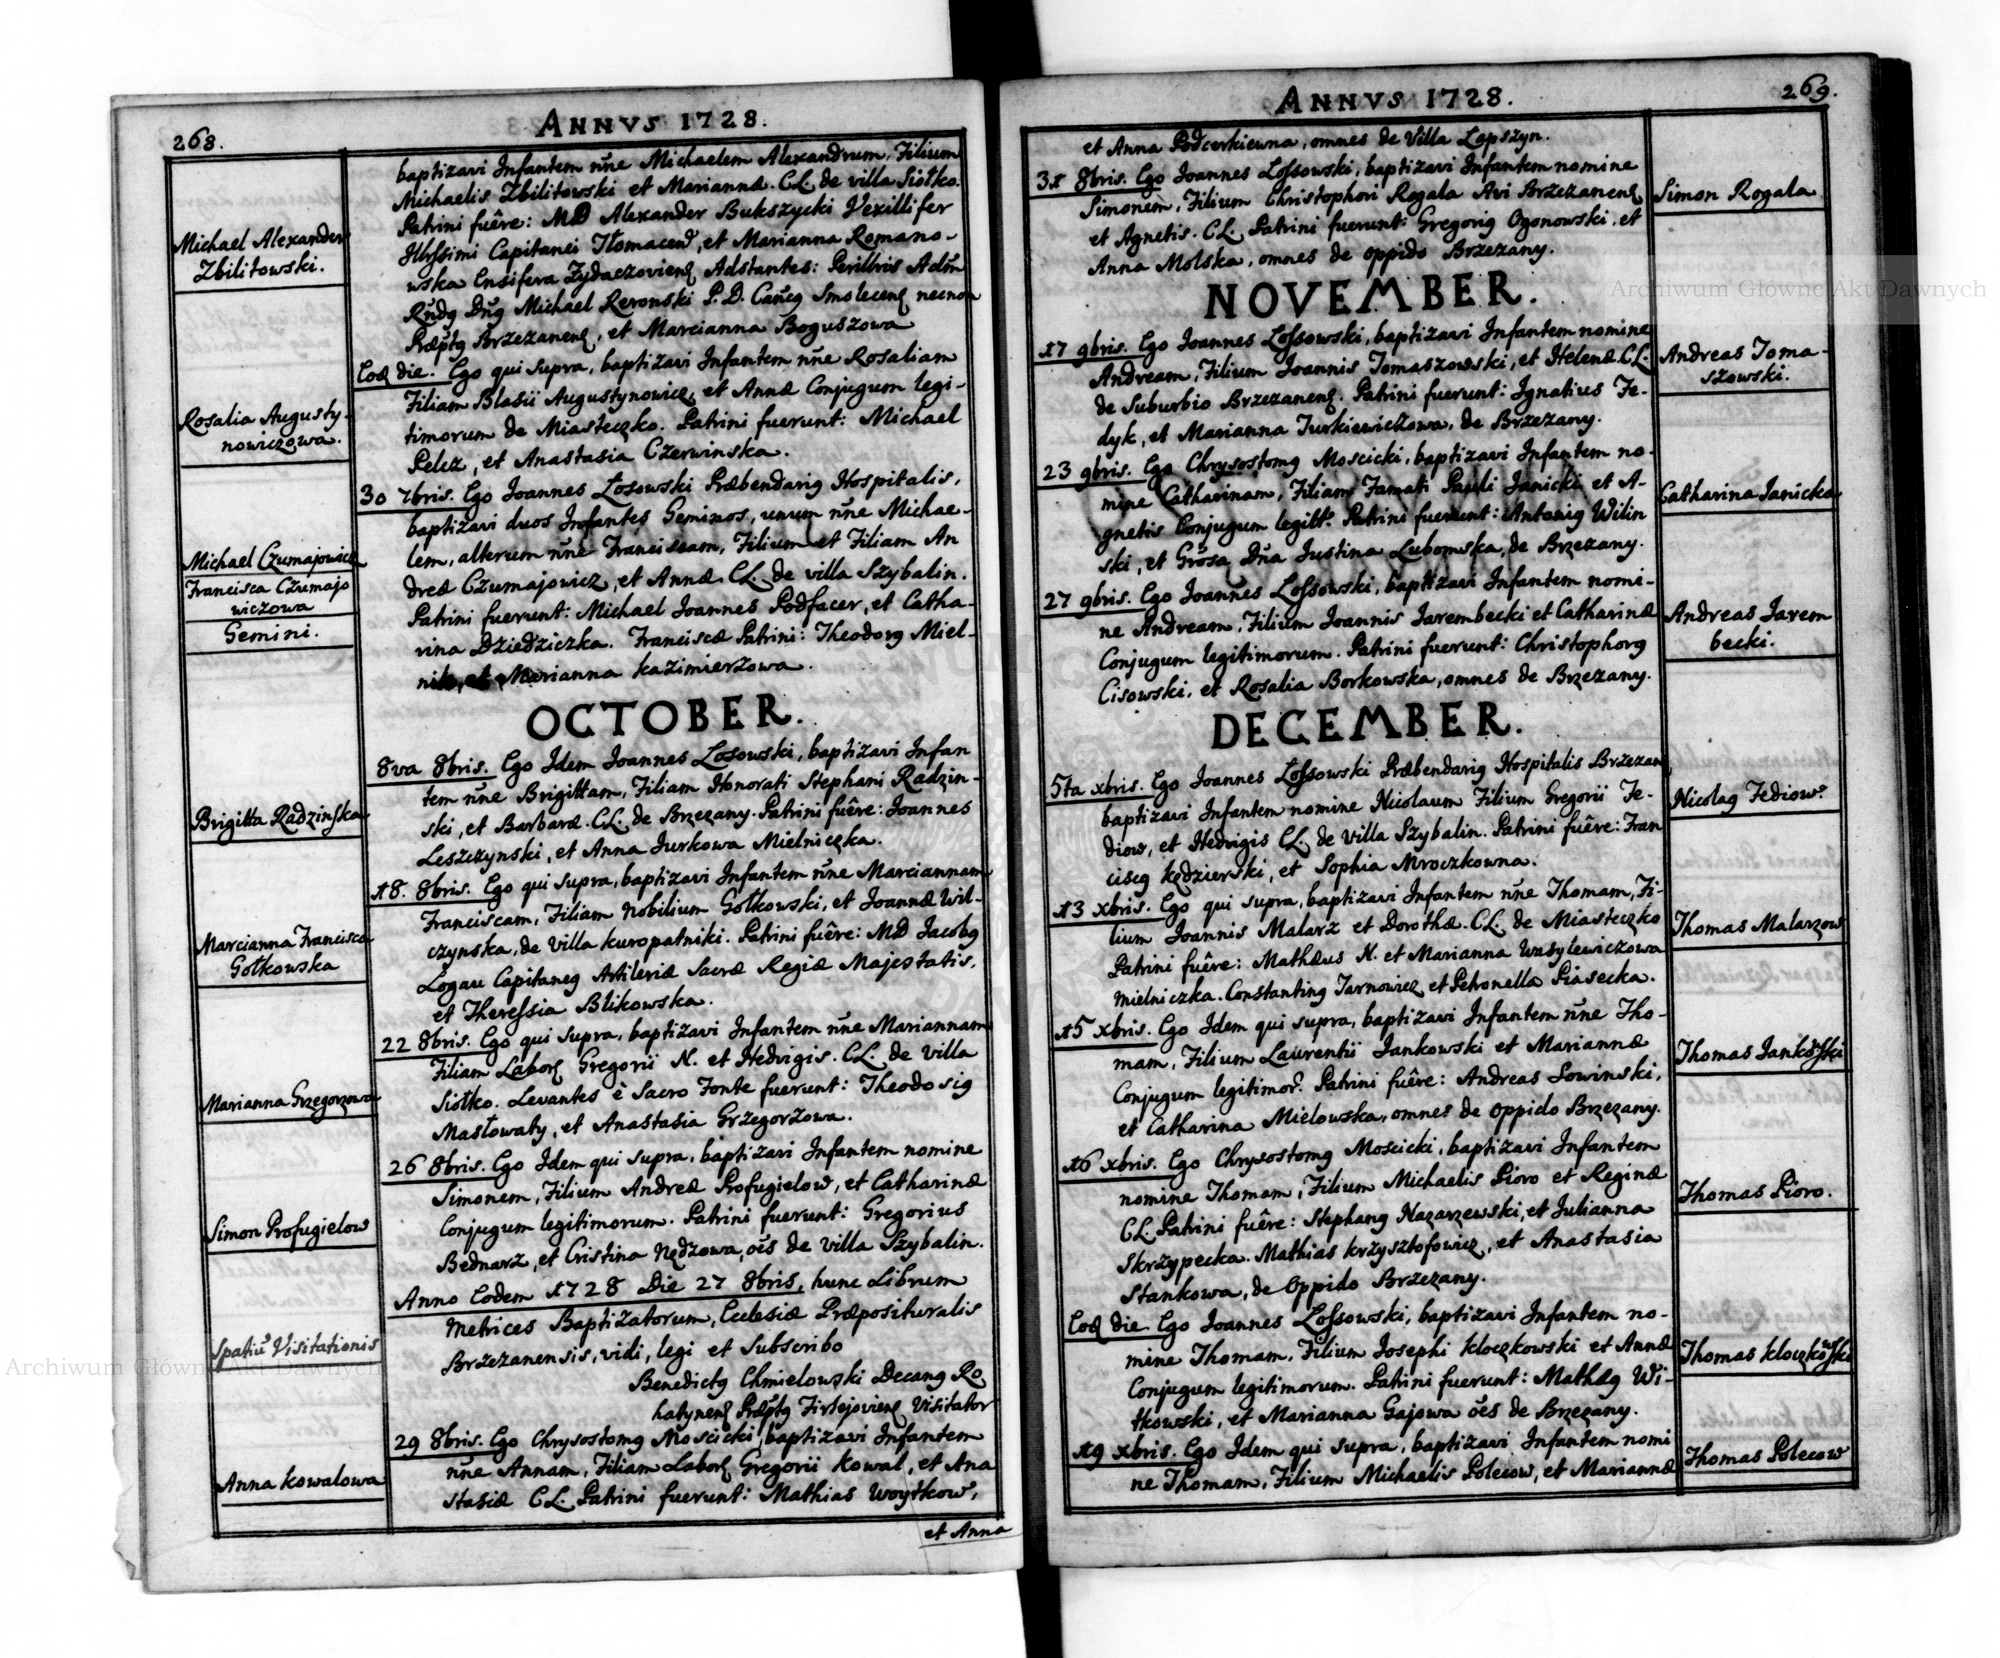 268.
ANNVS 1728.
baptizavi Infantem nne Michaelem Alexandrum, Filium
Michaelis Zbilitowski et Mariannæ. CL. de villa Siołko.
Patrini fuêre: MD Alexander Bukszycki Vexillifer
Illssimi Capitanei Tłomacen, et Marianna Romano-
wska Ensifera Zydaczovien, Adstantes: Perillris Adm
Rndg Dng Michael Revonski P.D. Cancg Smolecen necnon
Præptg Brzezanen, et Marcianna Boguszowa
Michael Alexander
Zbilitowski.
Eod die. Ego qui supra, baptizavi Infantem nne Rosaliam
Filiam Blasii Augustynowicz, et Annæ Conjugum legi-
timorum de Miasteczko. Patrini fuerunt: Michael
Pelcz, et Anastasia Czerwinska.
Rosalia Augusty-
nowiczowa.
30 7bris. Ego Joannes Losowski Præbendarig Hospitalis,
baptizavi duos Infantes Geminos, unum nne Michae-
lem, alterum nne Franciscam, Filium et Filiam An
dreæ Czumajowicz, et Annæ. CL. de villa Szybalin.
Patrini fuerunt: Michael Joannes Podfacer, et Catha-
rina Dziedziczka. Franciscæ Patrini: Theodorg Miel-
nik, et Marianna Kazimierzowa.
Michael Czumajowicz
Francisca Czumajo
wiczowa
Gemini.
OCTOBER.
8va 8bris. Ego Idem Joannes Losowski, baptizavi Infan
tem nne Brigittam, Filiam Honorati Stephani Radzin-
ski, et Barbaræ. CL. de Brzezany. Patrini fuêre: Joannes
Leszczynski, et Anna Jurkowa Mielniczka.
Brigitta Radzinska
18. 8bris. Ego qui supra, baptizavi Infantem nne Marciannam
Franciscam, Filiam Nobilium Gołkowski, et Joannæ Wil-
czynska, de villa Kuropatniki. Patrini fuêre: MD Jacobg
Logau Capitaneg Artileriæ Sacræ Regiæ Majestatis,
et Theressia Blikowska.
Marcianna Francisca
Gołkowska
22 8bris. Ego qui supra, baptizavi Infantem nne Mariannam
Filiam Labor Gregorii N. et Hedvigis. CL. de villa
Siołko. Levantes è Sacro Fonte fuerunt: Theodosig
Masłowaty, et Anastasia Grzegorzowa.
Marianna Grzegorzowa
26 8bris. Ego Idem qui supra, baptizavi Infantem nomine
Simonem, Filium Andreæ Profugielow, et Catharinæ
Conjugum legitimorum. Patrini fuerunt: Gregorius
Bednarz, et Cristina Nędzowa, oes de villa Szybalin.
Simon Profugielow
Anno Eodem 1728 Die 27 8bris, hunc Librum
Metrices Baptizatorum, Ecclesiæ Præposituralis
Brzezanensis, vidi, legi et Subscribo
Benedictg Chmielowski Decang Ro,
hatynen Præptg Firlejovien Visitator
Spatiu Visitationis
29 8bris. Ego Chrysostomg Moscicki, baptizavi Infantem
nne Annam, Filiam Labor Gregorii Kowal, et Ana
stasiæ CL. Patrini fuerunt: Mathias Woytkow,
Anna Kowalowa
et Anna
ANNVS 1728.
269.
et Anna Podcerkiewna, omnes de Villa Lapszyn.
31 8bris. Ego Joannes Lossowski, baptizavi Infantem nomine
Simonem, Filium Christophori Rogala Avi Brzezanen
et Agnetis. CL. Patrini fuerunt: Gregorig Ogonowski, et
Anna Molska, omnes de oppido Brzezany.
Simon Rogala
NOVEMBER.
17 9bris. Ego Joannes Lossowski, baptizavi Infantem nomine
Andream, Filium Joannis Tomaszowski, et Helenæ CL.
de Suburbio Brzezanen. Patrini fuerunt: Ignatius Fe-
dyk, et Marianna Jurkiewiczowa, de Brzezany.
Andreas Toma-
szowski.
23 9bris. Ego Chrysostomg Moscicki, baptizavi Infantem no-
mine Catharinam, Filiam Famati Pauli Janicki et A-
gnetis Conjugum legitt. Patrini fuerunt: Antonig Wilin
ski, et Grosa Dna Justina Lubomska, de Brzezany.
Catharina Janicka
27 9bris. Ego Joannes Lossowski, baptizavi Infantem nomi-
ne Andream, Filium Joannis Jarembecki et Catharinæ
Conjugum legitimorum. Patrini fuerunt: Christophorg
Cisowski, et Rosalia Borkowska, omnes de Brzezany.
Andreas Jarem
becki.
DECEMBER.
5ta xbris. Ego Joannes Lossowski Præbendarig Hospitalis Brzezan
baptizavi Infantem nomine Nicolaum Filium Gregorii Fe-
diow, et Hedvigis CL. de villa Szybalin. Patrini fuêre: Fran
ciscg Kędzierski, et Sophia Mroczkowna.
Nicolag Fediow
13 xbris. Ego qui supra, baptizavi Infantem nne Thomam, Fi-
lium Joannis Malarz et Dorothæ. CL. de Miasteczko
Patrini fuêre: Mathæus N. et Marianna Wasylewiczowa
Mielniczka. Constanting Tarnowicz et Petronella Piasecka.
Thomas Malarzow
15 xbris. Ego Idem qui supra, baptizavi Infantem nne Tho-
mam, Filium Laurentii Jankowski et Mariannæ
Conjugum legitimor. Patrini fuêre: Andreas Sowinski,
et Catharina Mielowska, omnes de Oppido Brzezany.
Thomas Jankowski
16 xbris. Ego Chrysostomg Moscicki, baptizavi Infantem
nomine Thomam, Filium Michaelis Pioro et Reginæ
CL. Patrini fuêre: Stephang Nazarzewski, et Julianna
Skrzypecka. Mathias Krzysztofowicz, et Anastasia
Stankowa, de Oppido Brzezany.
Thomas Pioro.
Eod die. Ego Joannes Lossowski, baptizavi Infantem no-
mine Thomam, Filium Josephi Kloczkowski et Annæ
Conjugum legitimorum. Patrini fuerunt: Mathæg Wi-
tkowski, et Marianna Gajowa oes de Brzezany.
Thomas Kloczkowski
19 xbris. Ego Idem qui supra, baptizavi Infantem nomi
ne Thomam, Filium Michaelis Polecow, et Mariannæ
Thomas Polecow
Archiwum Główne Akt Dawnych
Archiwum Główne Akt Dawnych